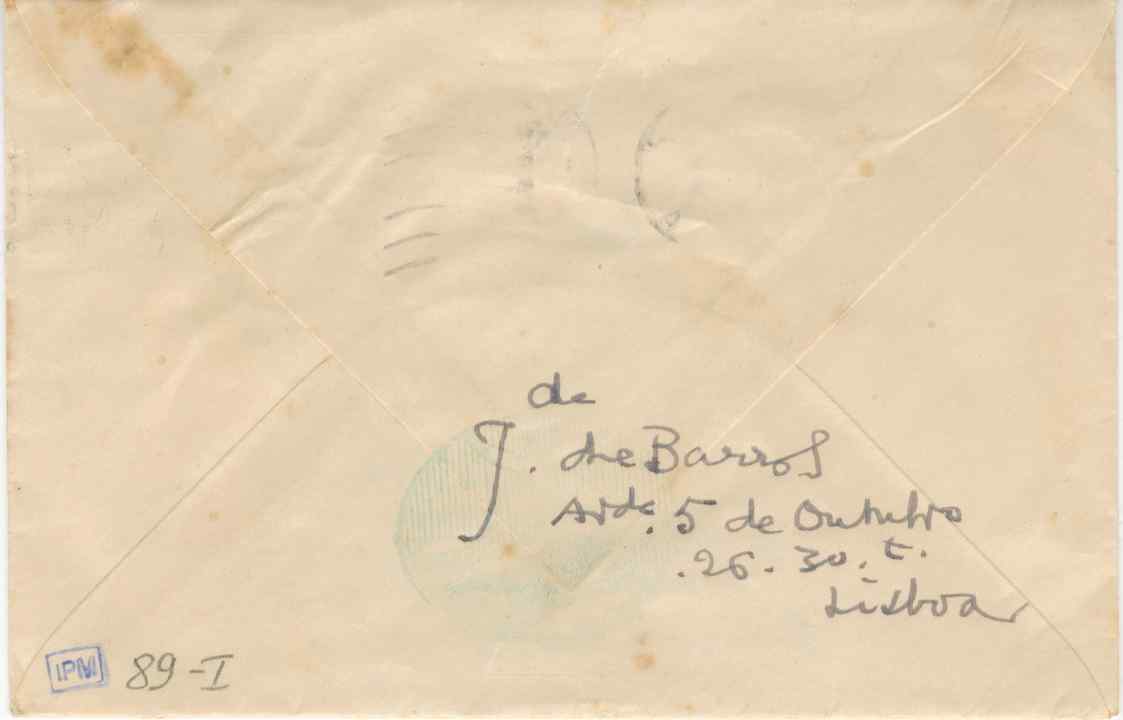 de
J. de Barros
Avda. 5 de Outubro
.26. 3o. t.
Lisboa
IPM 89-I